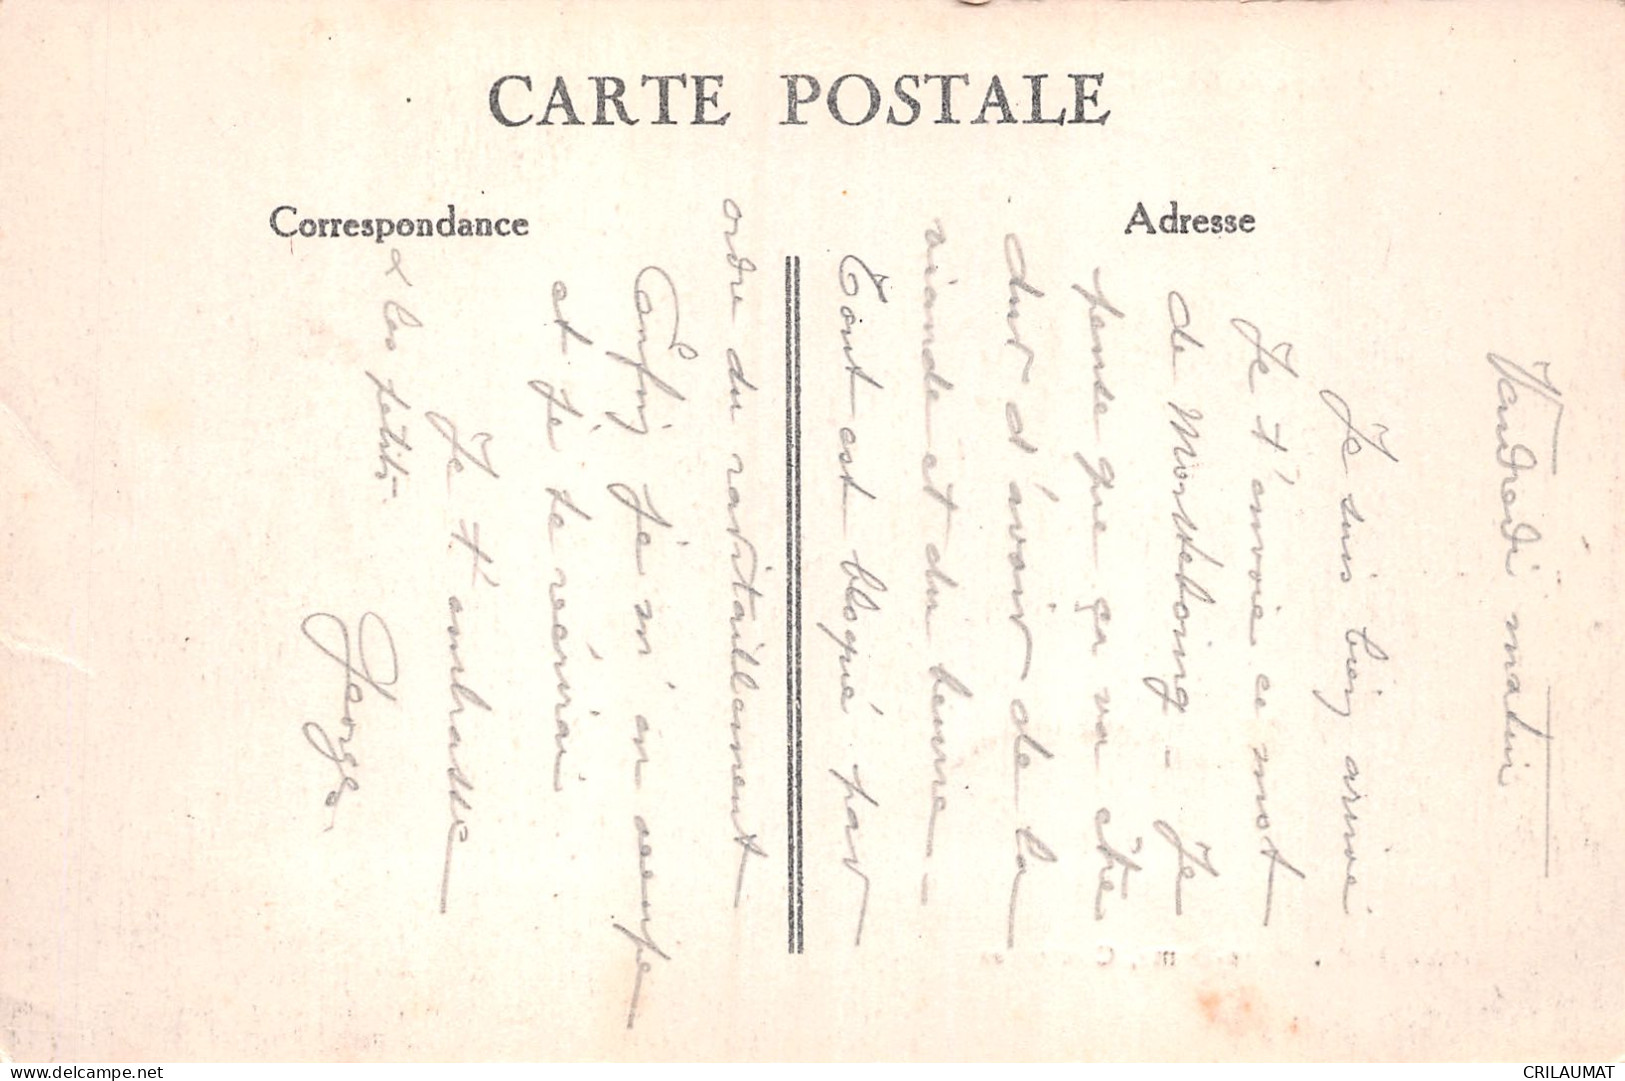 CARTE POSTALE
Correspondance
Adresse
Vendredi matin
Je suis bien arrivé
Je t'envoie ce mot
de Montebourg - Je
pense que ça va être
dur d'avoir de la
viande et du beurre -
Tout est bloqué par
ordre du ravitaillement
Enfin je m'en occupe
et je te reverrai
Je t'embrasse
& les petits -
George
Delcampe.net
CRILAUMAT